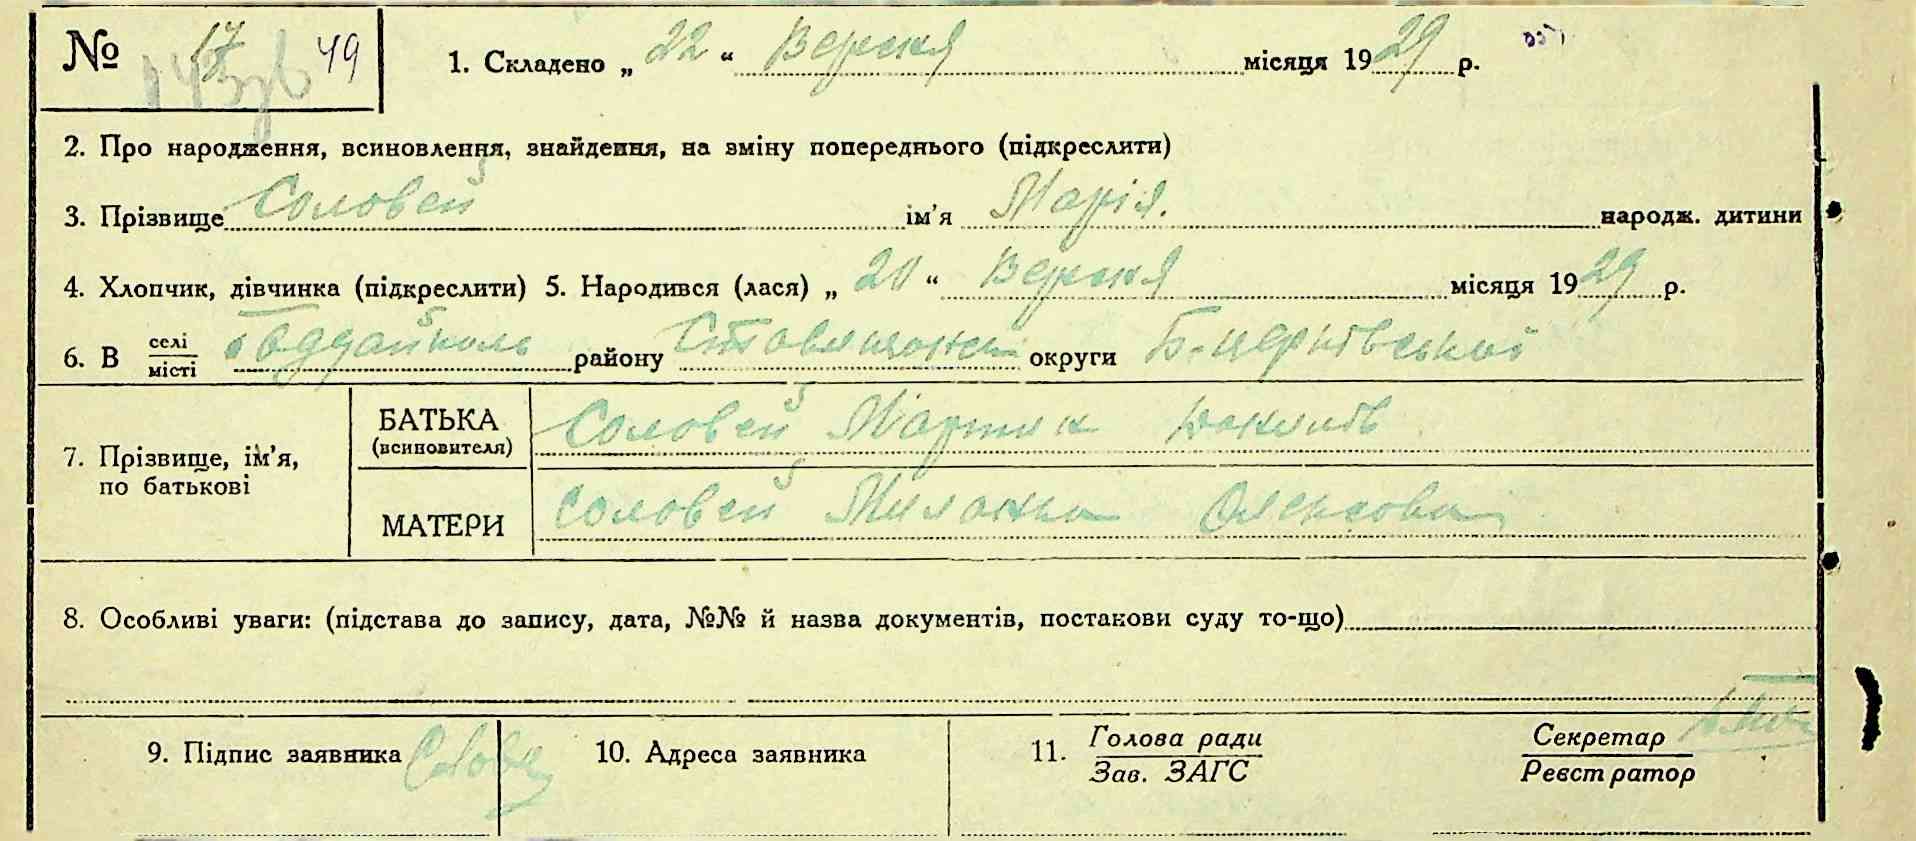 № 17 49
1. Складено „ 22 “ Вересня місяця 1929 р.
2. Про народження, всиновлення, знайдення, на зміну попереднього (підкреслити)
3. Прізвище Соловей ім’я Марія. народж. дитини
4. Хлопчик, дівчинка (підкреслити) 5. Народився (лася) „ 20 “ Вересня місяця 1929 р.
6. В селі/місті району округи Б-церківської
7. Прізвище, ім’я, по батькові
БАТЬКА (всиновителя) Соловей Мартин
МАТЕРИ Соловей Милашка Олексовна
8. Особливі уваги: (підстава до запису, дата, №№ й назва документів, постакови суду то-що)
9. Підпис заявника
10. Адреса заявника
11. Голова ради / Зав. ЗАГС
Секретар / Реєстратор